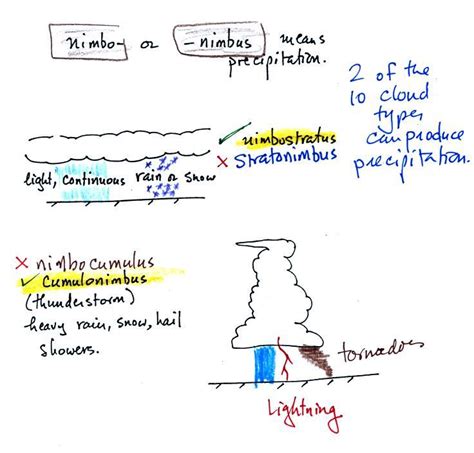 nimbo- or -nimbus means
precipitation.
2 of the
10 cloud
types
can produce
precipitation.
✓ nimbostratus
× Stratonimbus
light, continuous rain or snow
× nimbocumulus
✓ cumulonimbus
(thunderstorm)
heavy rain, snow, hail
showers.
tornadoes
Lightning